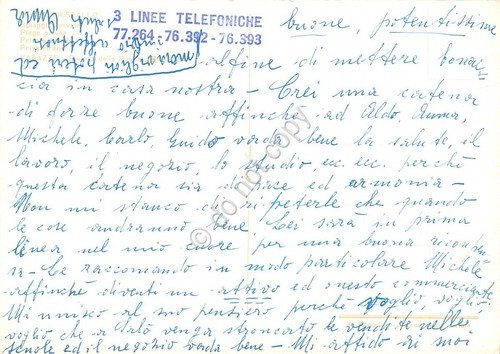 buone, potentissime
3 LINEE TELEFONICHE
77.264 - 76.392 - 76.393
saluti Anna
meravigliosi poteri ed
al fine di mettere bonac
cia in casa nostra - Crei una catena
di forze buone affinchè ad Aldo, Anna,
Michele, Carlo, Guido vada bene la salute, il
lavoro, il negozio, lo studio, ecc. ecc. perchè
questa catena sia di pace ed armonia -
Non mi stanco di ripeterle che quando
le cose andranno bene, Lei sarà in prima
linea nel mio cuore per una buona ricompen
sa - Le raccomando in modo particolare Michele
affinchè diventi un attivo ed onesto commerciante
Mi unisco al suo pensiero perchè voglio, voglio,
voglio che a Carlo venga stroncato le vendite nelle
scuole ed il negozio vada bene - Mi affido ai suoi
do not copy